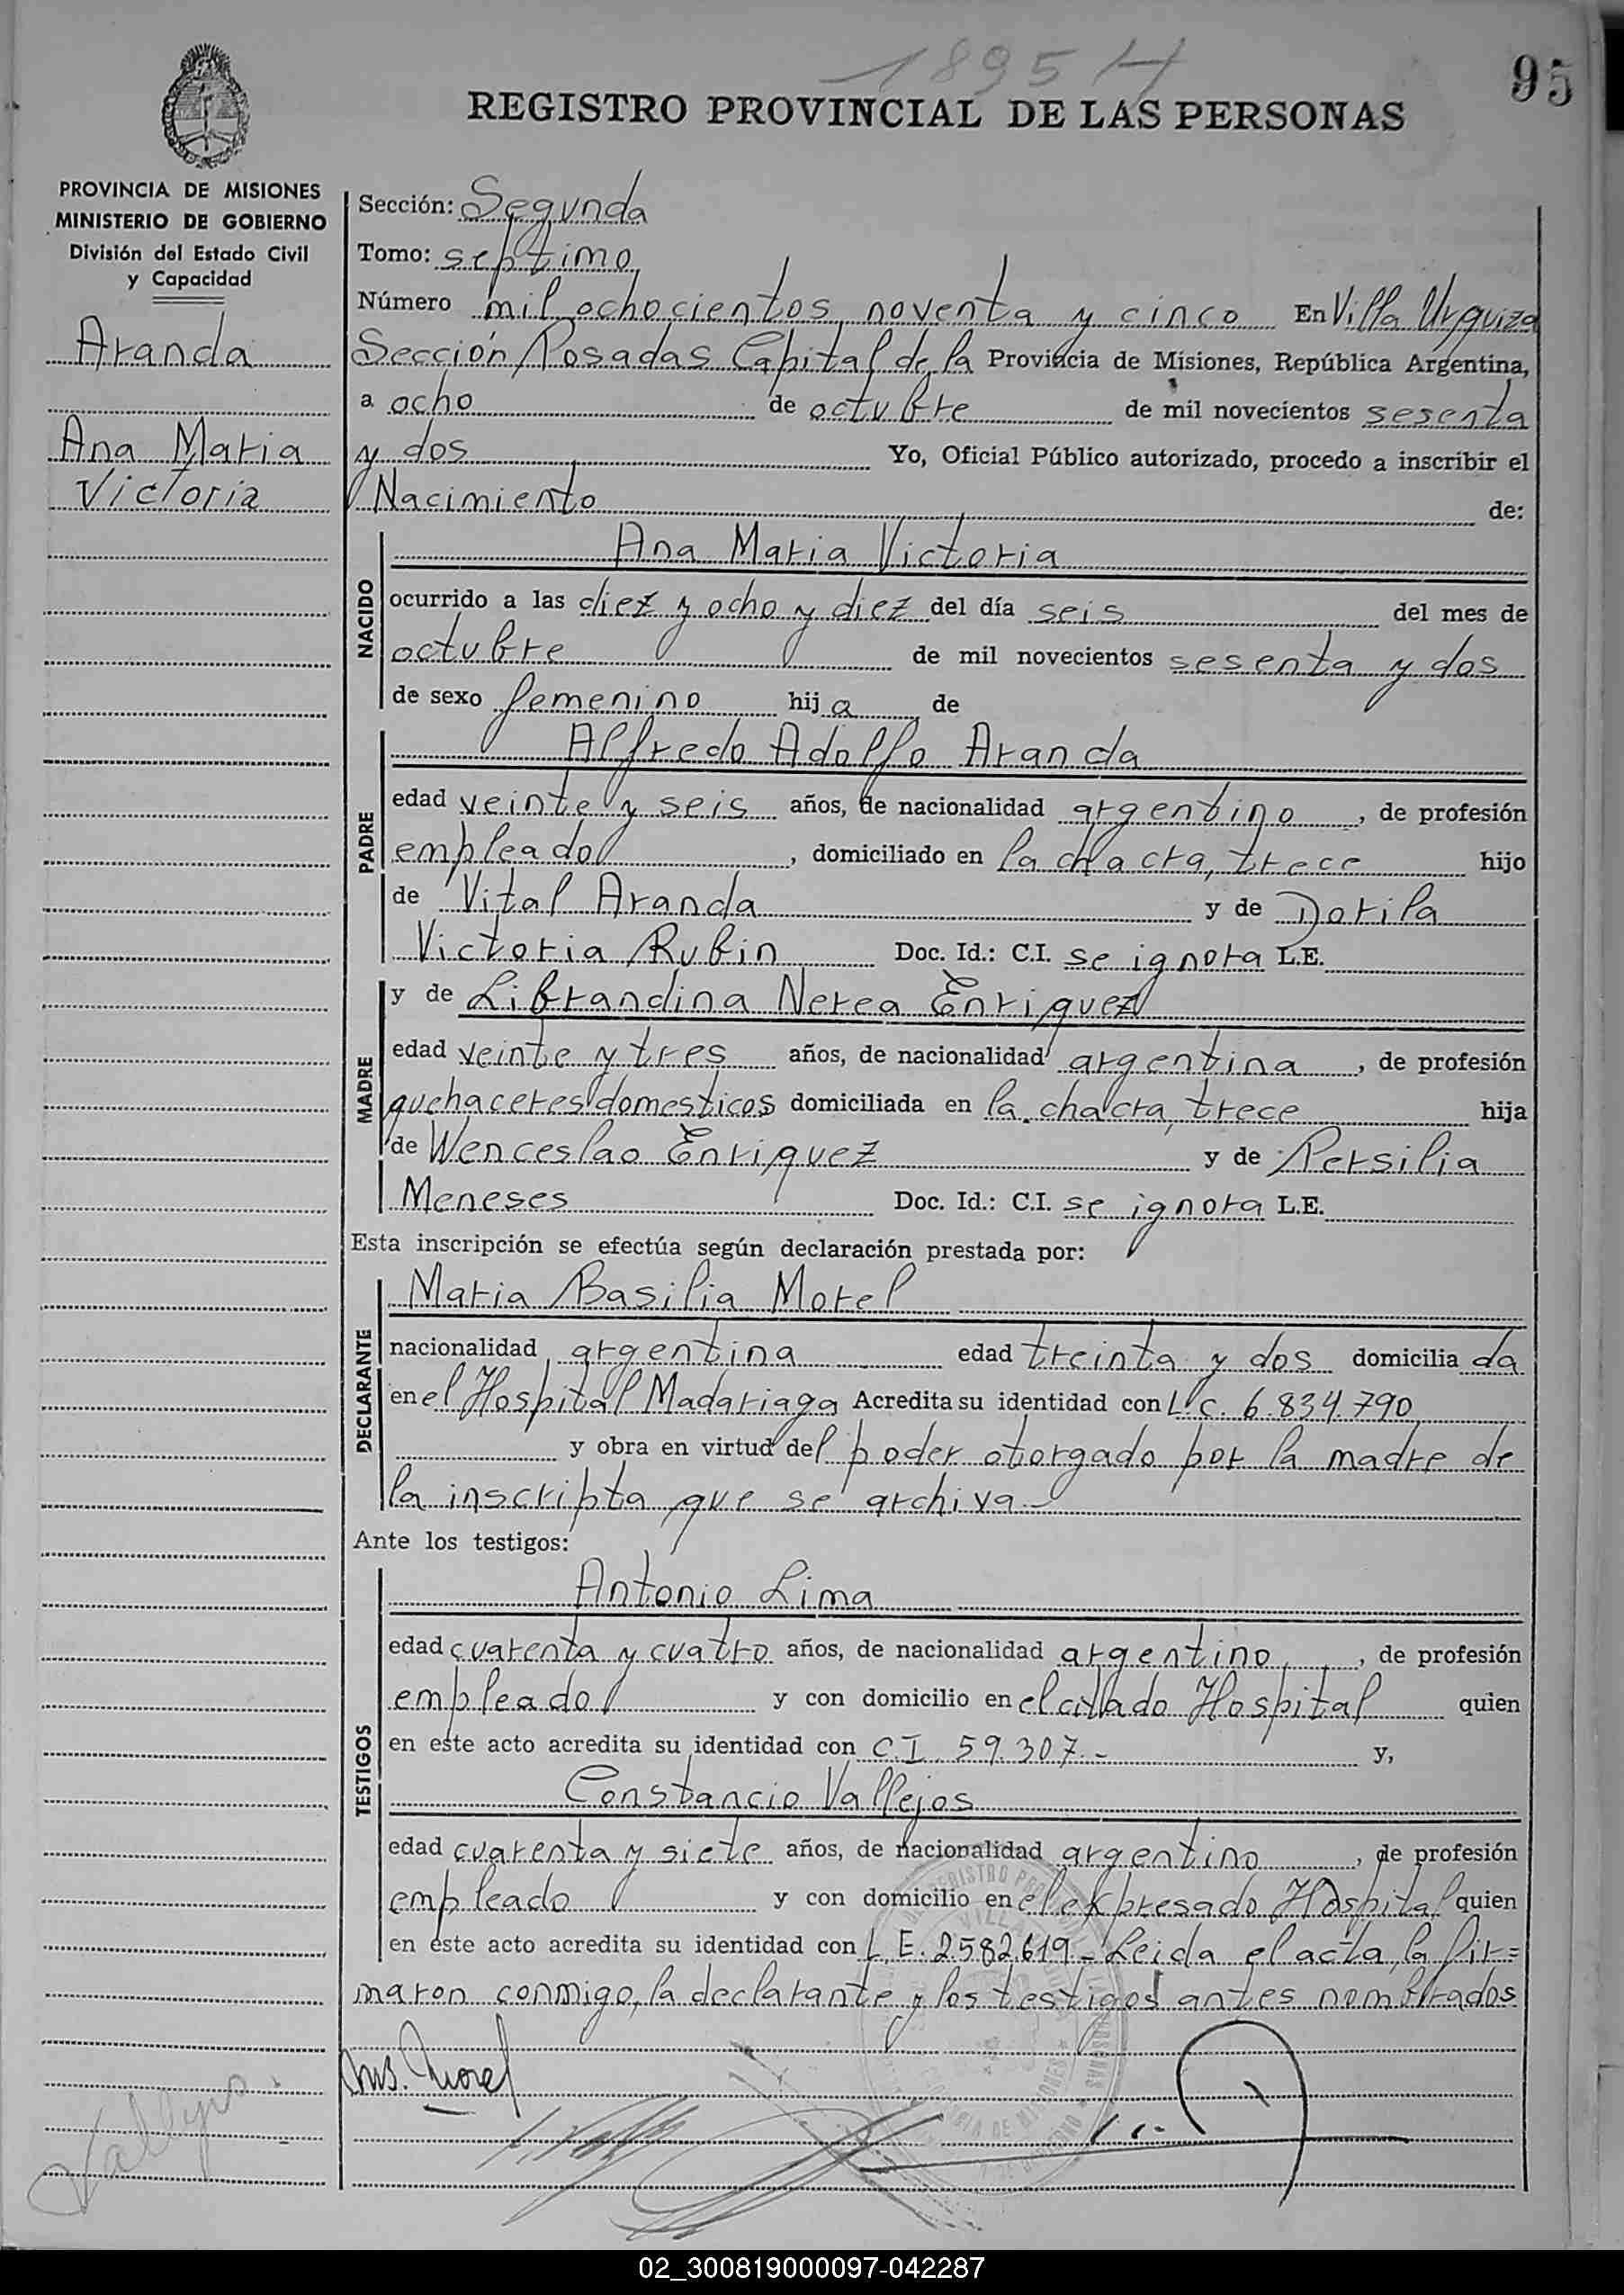 1895 H
95
REGISTRO PROVINCIAL DE LAS PERSONAS
PROVINCIA DE MISIONES
MINISTERIO DE GOBIERNO
División del Estado Civil
y Capacidad
Aranda
Ana Maria
Victoria
Sección: Segunda
Tomo: septimo
Número mil ochocientos noventa y cinco En Villa Urquiza
Sección Posadas Capital de la Provincia de Misiones, República Argentina,
a ocho de octubre de mil novecientos sesenta
y dos Yo, Oficial Público autorizado, procedo a inscribir el
Nacimiento de:
NACIDO
Ana Maria Victoria
ocurrido a las diez y ocho y diez del día seis del mes de
octubre de mil novecientos sesenta y dos
de sexo femenino hij a de
PADRE
Alfredo Adolfo Aranda
edad veinte y seis años, de nacionalidad argentino, de profesión
empleado, domiciliado en la chacra, trece hijo
de Vital Aranda y de Dorila
Victoria Rubin Doc. Id.: C.I. se ignora L.E.
MADRE
y de Librandina Nerea Enriquez
edad veinte y tres años, de nacionalidad argentina, de profesión
quehaceres domesticos domiciliada en la chacra, trece hija
de Wenceslao Enriquez y de Persilia
Meneses Doc. Id.: C.I. se ignora L.E.
Esta inscripción se efectúa según declaración prestada por:
DECLARANTE
Maria Basilia Morel
nacionalidad argentina edad treinta y dos domicilia da
en el Hospital Madariaga Acredita su identidad con L.C. 6.834.790
y obra en virtud del poder otorgado por la madre de
la inscripta que se archiva.-
Ante los testigos:
TESTIGOS
Antonio Lima
edad cuarenta y cuatro años, de nacionalidad argentino, de profesión
empleado y con domicilio en el citado Hospital quien
en este acto acredita su identidad con C.I. 59.307.- y,
Constancio Vallejos
edad cuarenta y siete años, de nacionalidad argentino, de profesión
empleado y con domicilio en el expresado Hospital quien
en este acto acredita su identidad con L.E. 2.582.619.- Leida el acta, la fir=
maron conmigo, la declarante y los testigos antes nombrados
Morel
02_300819000097-042287